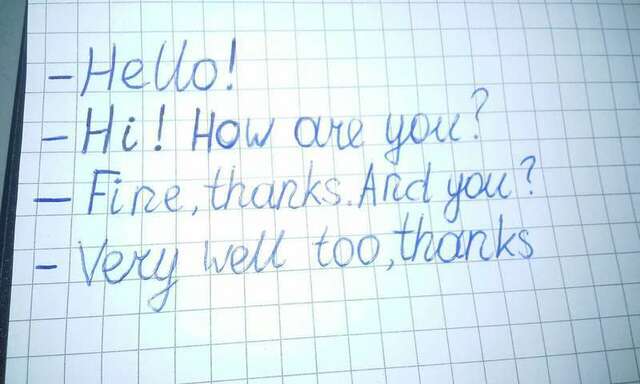 - Hello!
- Hi! How are you?
- Fine, thanks. And you?
- Very well too, thanks